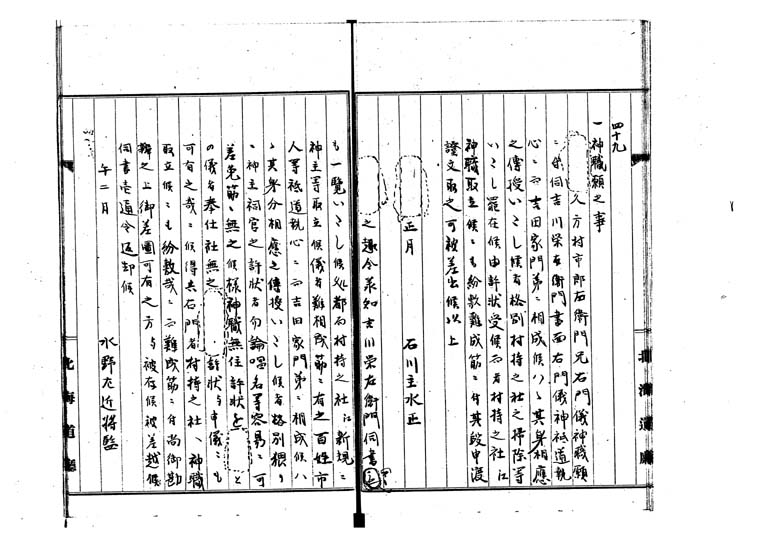 四十九
一神職願之事
久方村市郎右衛門元右門儀神職願
ニ付伺吉川栄左衛門書面右門儀神祗道執
心ニ而吉田家門弟ニ相成候ハヽ其身相應
之傳授いたし候者格別村持之社之掃除等
いたし罷在候由許状受候而者村持之社江
神職取立候ニも紛敷難成筋ニ付其段申渡
證文取之可被差出候以上
正月 石川主水正
之趣令承知吉川栄左衛門伺書
も一覧いたし候処都而村持之社江新規ニ
神主等取立候儀者難相成筋ニ有之百姓市
人等祗道執心ニ而吉田家門弟ニ相成候ハ
ヽ其身分相應之傳授いたし候者格別猥リ
ニ神主祠官之許状者勿論唱名等容易ニ可
差免筋ニ無之候様神職無住許状を と
の儀者奉仕社無之 許状与申儀ニも
可有之哉ニ候得共右門者村持之社ヽ神職
取立候ニも紛敷哉ニ而難成筋ニ付尚御勘
辨之上御差圖可有之方与被存候被差越候
伺書壱通令返却候
午二月 水野左近将監
北海道廳
北海道廳